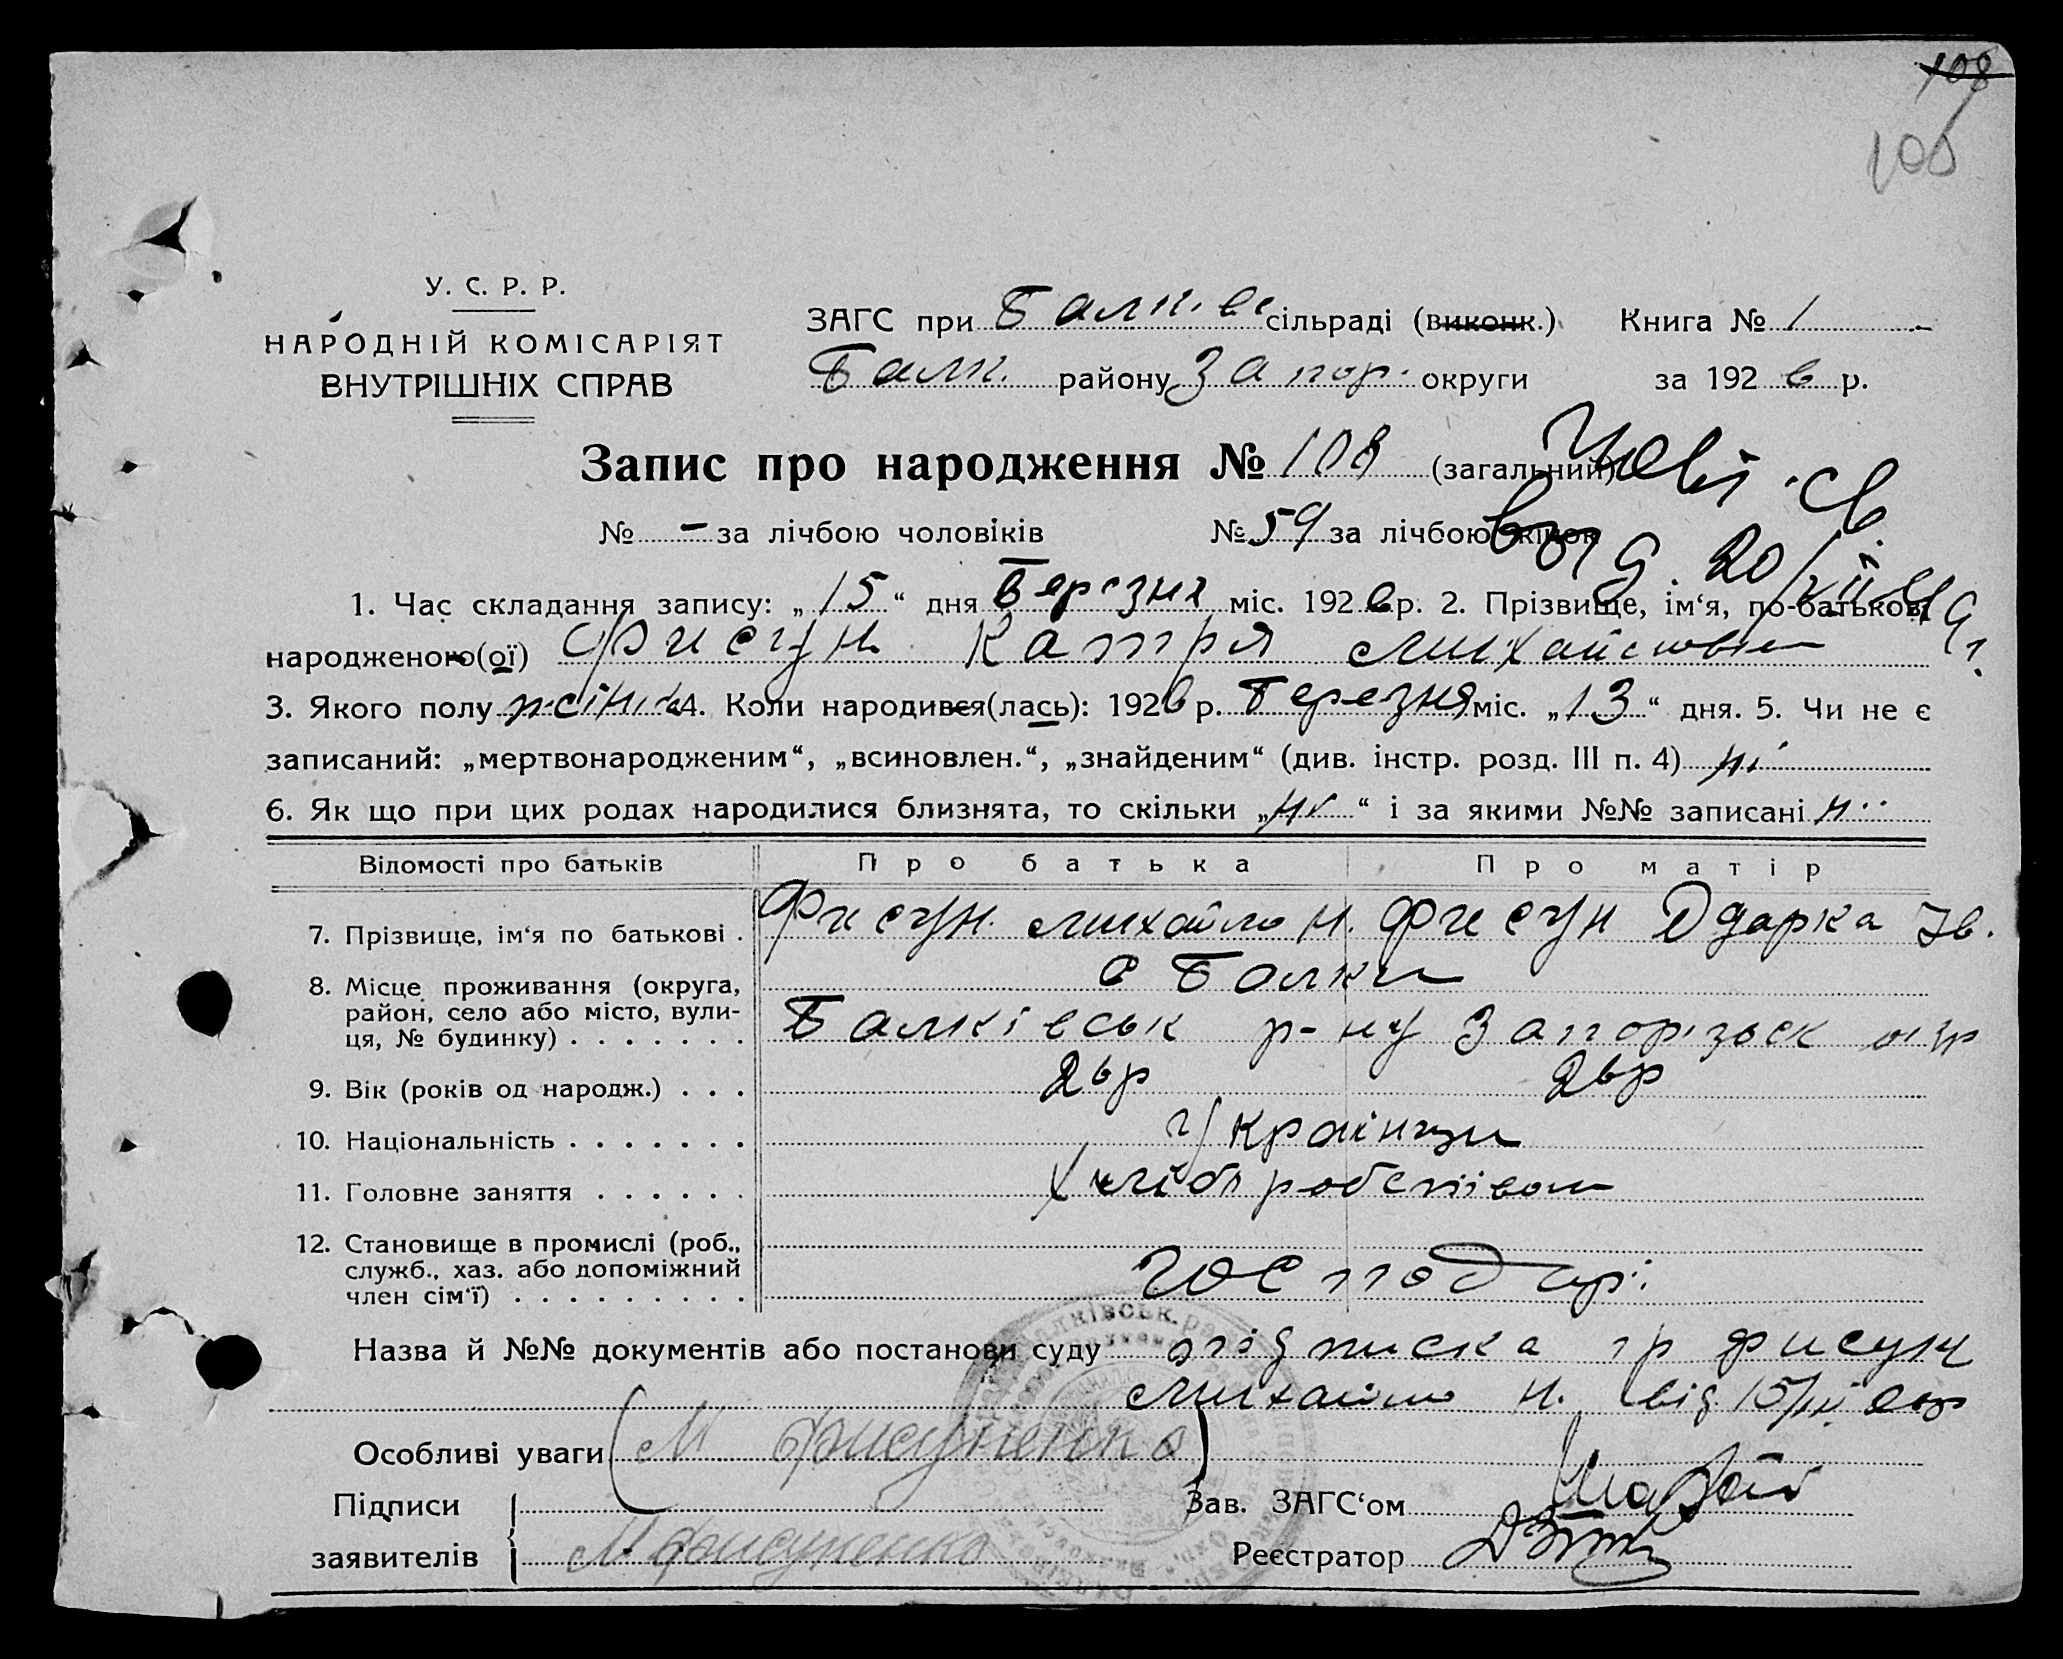 108
106
У. С. Р. Р.
НАРОДНІЙ КОМІСАРІЯТ
ВНУТРІШНІХ СПРАВ
ЗАГС при Балк. вс сільраді (виконк.) Книга № 1
Балк. району Запор. округи за 192 6 р.
Запис про народження № 108 (загальний)
№ – за лічбою чоловіків № 59 за лічбою жінок
вид. 20/
1. Час складання запису: „ 15 “ дня Березня міс. 192 6 р. 2. Прізвище, ім‘я, по-батькові
народженого(ої) Фисун Катря Михайловна
3. Якого полу жіноч 4. Коли народився(лась): 192 6 р. Березня міс. „ 13 “ дня. 5. Чи не є
записаний: „мертвонародженим“, „всиновлен.“, „знайденим“ (див. інстр. розд. III п. 4) ні
6. Як що при цих родах народилися близнята, то скільки „ ні “ і за якими №№ записані ні
Відомості про батьків Про батька Про матір
7. Прізвище, ім‘я по батькові . Фисун Михайло Н. Фисун Одарка Ів.
8. Місце проживання (округа, с Балки
район, село або місто, вули- Балківськ р-ну Запорізьк окр
ця, № будинку) . . . . . . .
9. Вік (років од народж.) . . . 26р 26р
10. Національність . . . . . . . Українци
11. Головне заняття . . . . . . Хліборобством
12. Становище в промислі (роб.,
служб., хаз. або допоміжний Господарі
член сім‘ї) . . . . . . . . .
Назва й №№ документів або постанови суду підписка гр Фисун
Михайло Н. від 15/III 26р
Особливі уваги (М Фисуненко)
Підписи Зав. ЗАГС‘ом
заявителів М Фисуненко Реєстратор